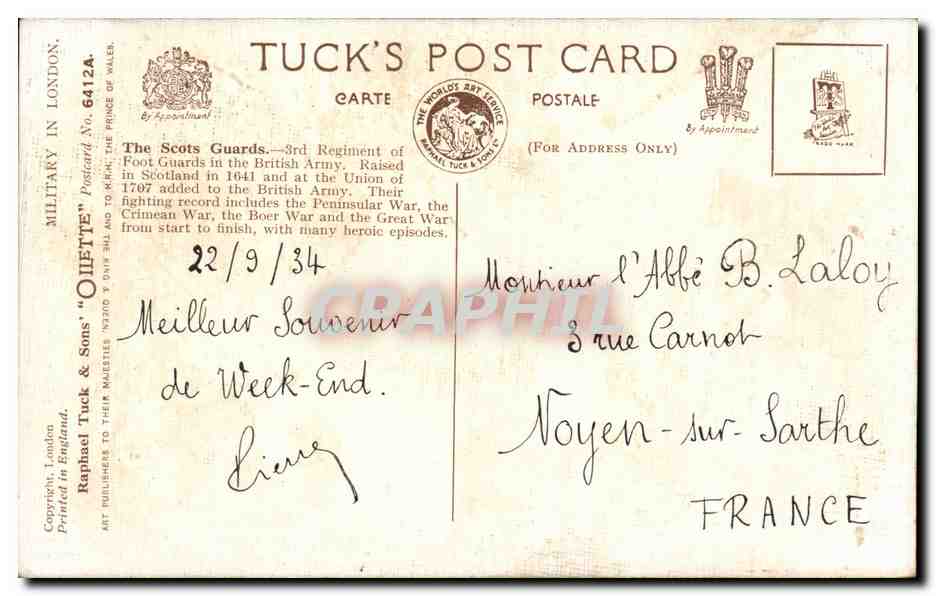 TUCK'S POST CARD
CARTE POSTALE
By Appointment
THE WORLD'S ART SERVICE
RAPHAEL TUCK & SONS LTD
By Appointment
(FOR ADDRESS ONLY)
TRADE MARK
MILITARY IN LONDON.
Raphael Tuck & Sons' "OILETTE" Postcard No. 6412A.
ART PUBLISHERS TO THEIR MAJESTIES THE KING & QUEEN, AND TO H.R.H. THE PRINCE OF WALES.
Copyright, London
Printed in England.
The Scots Guards.—3rd Regiment of
Foot Guards in the British Army. Raised
in Scotland in 1641 and at the Union of
1707 added to the British Army. Their
fighting record includes the Peninsular War, the
Crimean War, the Boer War and the Great War
from start to finish, with many heroic episodes.
22/9/34
Meilleur Souvenir
de Week-End.
Pierre
Monsieur l'Abbé B. Laloy
3 rue Carnot
Noyen-sur-Sarthe
FRANCE
CPAPHIL